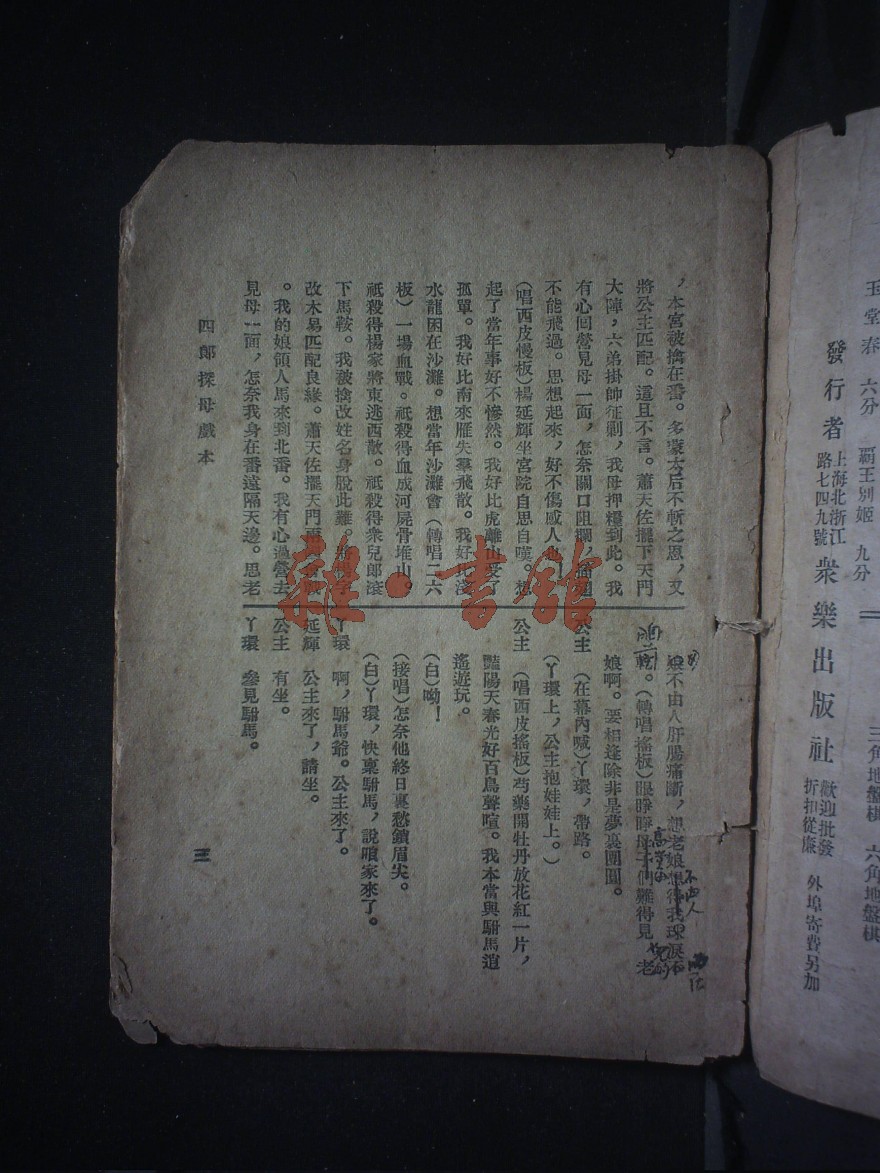 玉堂春 六分 霸王別姬 九分
三角地盤棋 六角地盤棋
發行者
上海北浙江
路七四九號
衆樂出版社
歡迎批發
折扣從廉
外埠寄費另加
，本宮被擒在番。多蒙太后不斬之恩，又
將公主匹配。這且不言。蕭天佐擺下天門
大陣，六弟掛帥征剿，我母押糧到此。我
有心回營見母一面，怎奈關口阻攔，插翅
不能飛過。思想起來，好不傷感人也
（唱西皮慢板）楊延輝坐宮院自思自嘆。想
起了當年事好不慘然。我好比虎離山受了
孤單。我好比南來雁失羣飛散。我好比淺
水龍困在沙灘。想當年沙灘會（轉唱二六
板）一場血戰。祇殺得血成河屍骨堆山。
祇殺得楊家將東逃西散。祇殺得衆兒郎滾
下馬鞍。我被擒改姓名身脫此難。將楊字
改木易匹配良緣。蕭天佐擺天門兩
。我的娘領人馬來到北番。我有心過營去
見母一面，怎奈我身在番遠隔天邊。思老
娘不由人肝腸痛斷，想老娘想得我珠淚不
不由人
乾。（轉唱搖板）眼睜睜母子們難得見 老
兒的
娘啊。要相逢除非是夢裏團圓。
公主 （在幕內喊）丫環，帶路。
（丫環上，公主抱娃娃上。）
公主 （唱西皮搖板）芍藥開牡丹放花紅一片，
豔陽天春光好百鳥聲喧。我本當與駙馬逍
遙遊玩。
（白）呦！
（接唱）怎奈他終日裏愁鎖眉尖。
（白）丫環，快稟駙馬，說咱家來了。
丫環 啊，駙馬爺。公主來了。
延輝 公主來了，請坐。
公主 有坐。
丫環 參見駙馬。
四郎探母戲本
三
雜·書館